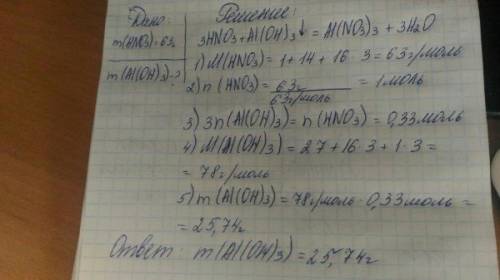 Дано:
m(HNO3)=63г
m(Al(OH)3)-?
Решение:
3HNO3+Al(OH)3↓=Al(NO3)3+3H2O
1) M(HNO3)=1+14+16·3=63г/моль
2) n(HNO3)=63г/63г/моль=1моль
3) 3n(Al(OH)3)=n(HNO3)=0,33моль
4) M(Al(OH)3)=27+16·3+1·3=
=78г/моль
5) m(Al(OH)3)=78г/моль·0,33моль=
=25,74г
Ответ: m(Al(OH)3)=25,74г